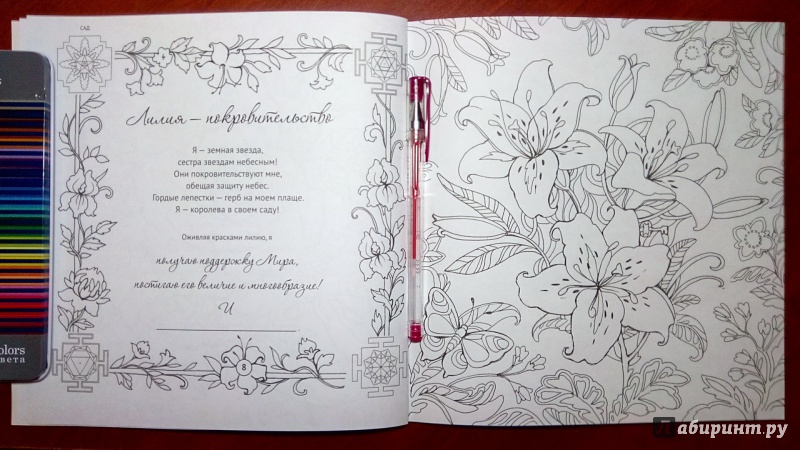 САД
Лилия — покровительство
Я — земная звезда,
сестра звездам небесным!
Они покровительствуют мне,
обещая защиту небес.
Гордые лепестки — герб на моем плаще.
Я — королева в своем саду!
Оживляя красками лилию, я
получаю поддержку Мира,
постигаю его величие и многообразие!
И
8
olors
вета
Лабиринт.ру